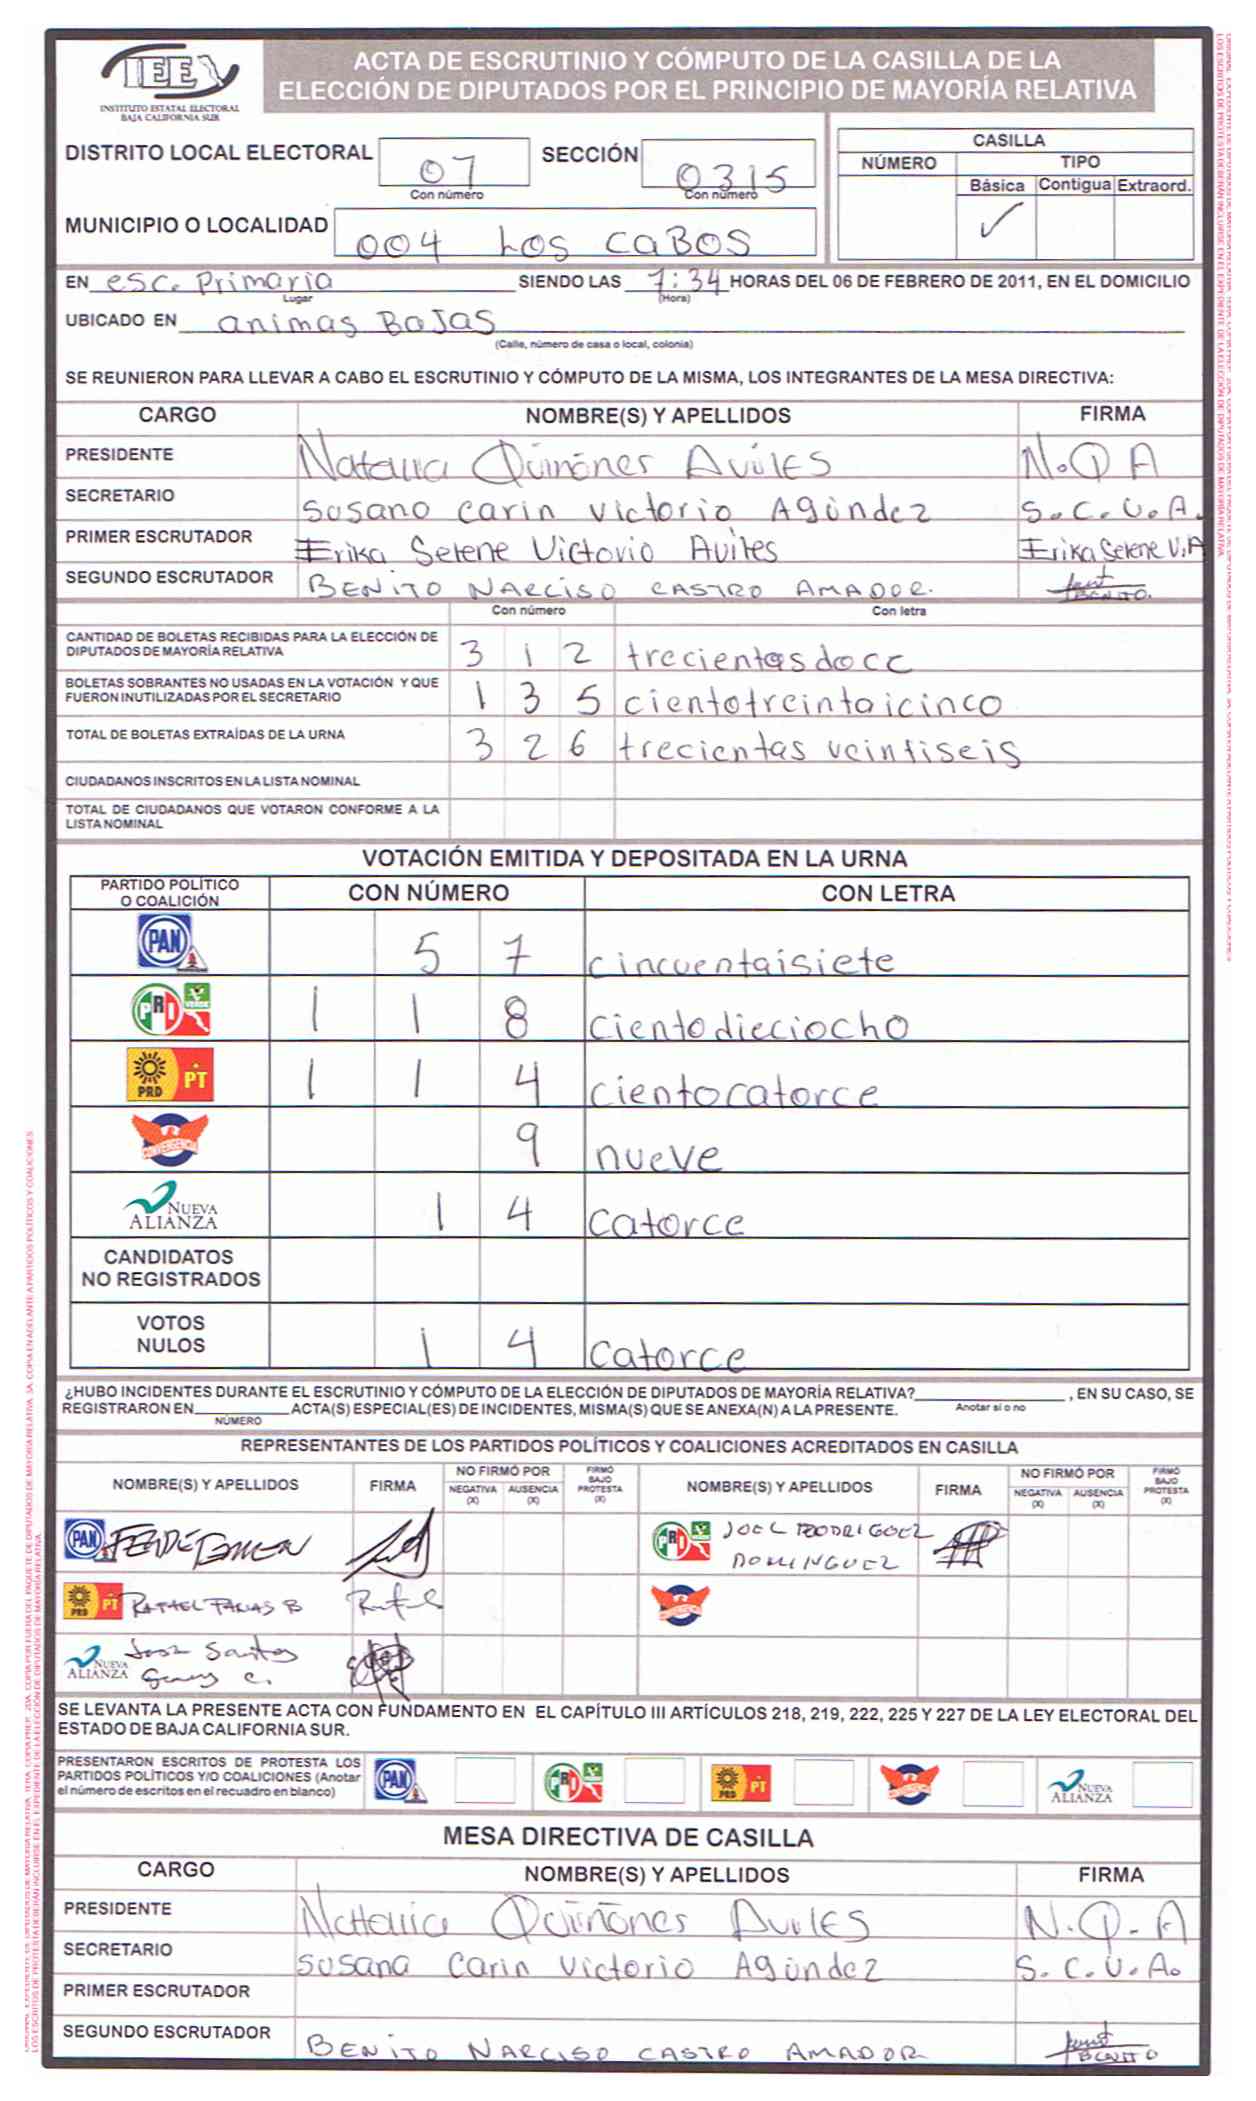 IEE
INSTITUTO ESTATAL ELECTORAL
BAJA CALIFORNIA SUR
ACTA DE ESCRUTINIO Y CÓMPUTO DE LA CASILLA DE LA
ELECCIÓN DE DIPUTADOS POR EL PRINCIPIO DE MAYORÍA RELATIVA
DISTRITO LOCAL ELECTORAL 07 SECCIÓN 0315
Con número Con número
MUNICIPIO O LOCALIDAD 004 Los CABOS
CASILLA
NÚMERO TIPO
Básica Contigua Extraord.
✓
EN esc. Primaria SIENDO LAS 7:34 HORAS DEL 06 DE FEBRERO DE 2011, EN EL DOMICILIO
Lugar (Hora)
UBICADO EN animas BaJas
(Calle, número de casa o local, colonia)
SE REUNIERON PARA LLEVAR A CABO EL ESCRUTINIO Y CÓMPUTO DE LA MISMA, LOS INTEGRANTES DE LA MESA DIRECTIVA:
CARGO NOMBRE(S) Y APELLIDOS FIRMA
PRESIDENTE Natalia Quiñónes AvilES N.Q A
SECRETARIO Susano Carin Victorio Agúndez S.C.V.A.
PRIMER ESCRUTADOR Erika Selene Victorio Aviles Erika Selene V.A
SEGUNDO ESCRUTADOR BENITO NARCISO CASTRO AMADOR. BENITO.
Con número Con letra
CANTIDAD DE BOLETAS RECIBIDAS PARA LA ELECCIÓN DE
DIPUTADOS DE MAYORÍA RELATIVA 3 1 2 trecientas doce
BOLETAS SOBRANTES NO USADAS EN LA VOTACIÓN Y QUE
FUERON INUTILIZADAS POR EL SECRETARIO 1 3 5 cientotreintaicinco
TOTAL DE BOLETAS EXTRAÍDAS DE LA URNA 3 2 6 trecientas veintiseis
CIUDADANOS INSCRITOS EN LA LISTA NOMINAL
TOTAL DE CIUDADANOS QUE VOTARON CONFORME A LA
LISTA NOMINAL
VOTACIÓN EMITIDA Y DEPOSITADA EN LA URNA
PARTIDO POLÍTICO
O COALICIÓN CON NÚMERO CON LETRA
PAN 5 7 cincuentaisiete
PRI VERDE 1 1 8 cientodieciocho
PRD PT 1 1 4 cientocatorce
CONVERGENCIA 9 nueve
NUEVA
ALIANZA 1 4 catorce
CANDIDATOS
NO REGISTRADOS
VOTOS
NULOS 1 4 catorce
¿HUBO INCIDENTES DURANTE EL ESCRUTINIO Y CÓMPUTO DE LA ELECCIÓN DE DIPUTADOS DE MAYORÍA RELATIVA? , EN SU CASO, SE
REGISTRARON EN ACTA(S) ESPECIAL(ES) DE INCIDENTES, MISMA(S) QUE SE ANEXA(N) A LA PRESENTE. Anotar sí o no
NÚMERO
REPRESENTANTES DE LOS PARTIDOS POLÍTICOS Y COALICIONES ACREDITADOS EN CASILLA
NOMBRE(S) Y APELLIDOS FIRMA NO FIRMÓ POR NEGATIVA (X) AUSENCIA (X) FIRMÓ BAJO PROTESTA (X) NOMBRE(S) Y APELLIDOS FIRMA NO FIRMÓ POR NEGATIVA (X) AUSENCIA (X) FIRMÓ BAJO PROTESTA (X)
PAN PRI JOEL RODRIGUEZ
DOMINGUEZ
PRD PT RAFAEL B CONVERGENCIA
NUEVA
ALIANZA Jose Santos
SE LEVANTA LA PRESENTE ACTA CON FUNDAMENTO EN EL CAPÍTULO III ARTÍCULOS 218, 219, 222, 225 Y 227 DE LA LEY ELECTORAL DEL
ESTADO DE BAJA CALIFORNIA SUR.
PRESENTARON ESCRITOS DE PROTESTA LOS
PARTIDOS POLÍTICOS Y/O COALICIONES (Anotar
el número de escritos en el recuadro en blanco) PAN PRI PRD PT CONVERGENCIA NUEVA ALIANZA
MESA DIRECTIVA DE CASILLA
CARGO NOMBRE(S) Y APELLIDOS FIRMA
PRESIDENTE Natalia Quiñónes AvilES N.Q.A
SECRETARIO Susana Carin Victorio Agúndez S.C.V.A.
PRIMER ESCRUTADOR
SEGUNDO ESCRUTADOR BENITO NARCISO CASTRO AMADOR BENITO